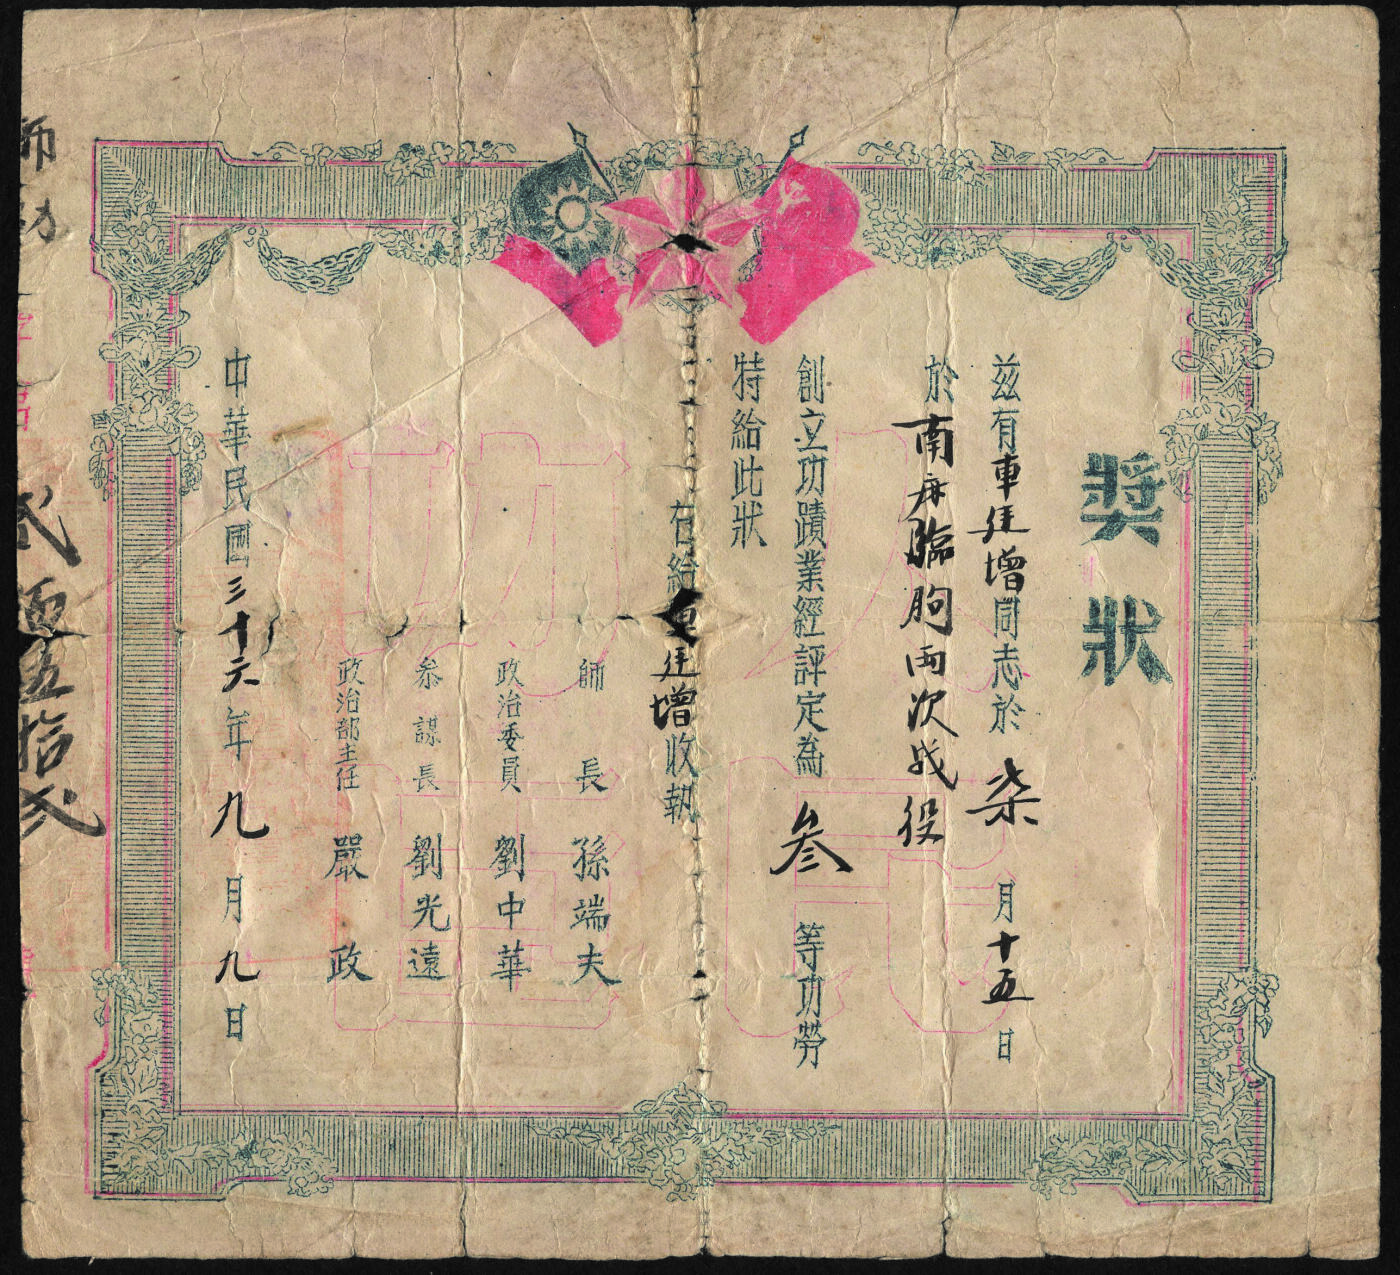 獎狀
茲有車廷增同志於柒月十五日
於南麻臨朐兩次战役
創立功蹟業經評定為叁等功勞
特給此狀
右給車廷增收執
師長 孫端夫
政治委員 劉中華
叅謀長 劉光遠
政治部主任 嚴政
中華民國三十六年九月九日
貳百五拾弍